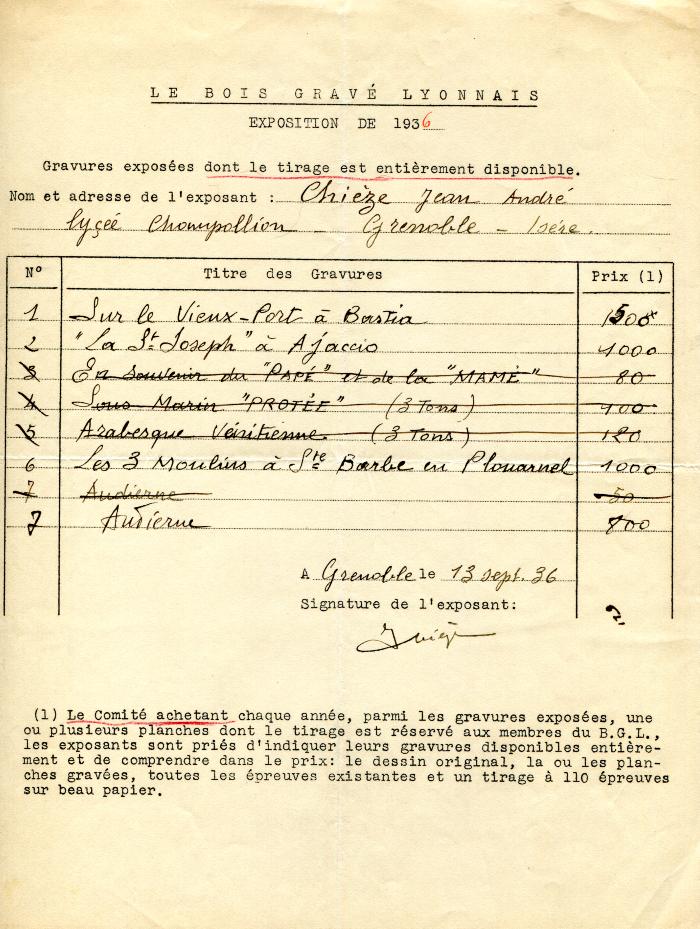 LE BOIS GRAVÉ LYONNAIS
EXPOSITION DE 1936
Gravures exposées dont le tirage est entièrement disponible.
Nom et adresse de l'exposant : Chièze Jean André
lycée Champollion - Grenoble - Isère.
N° Titre des Gravures Prix (1)
1 Sur le Vieux-Port à Bastia 1500
2 "La St Joseph" à Ajaccio 1000
3 En souvenir du "PAPÉ" et de la "MAMÉ" 80
4 Sous Marin "PROTÉE" (3 Tons) 100
5 Arabesque Vénitienne (3 Tons) 120
6 Les 3 Moulins à Ste Barbe en Plouarnel 1000
7 Audierne 50
7 Audierne 800
A Grenoble le 13 sept. 36
Signature de l'exposant:
(1) Le Comité achetant chaque année, parmi les gravures exposées, une
ou plusieurs planches dont le tirage est réservé aux membres du B.G.L.,
les exposants sont priés d'indiquer leurs gravures disponibles entière-
ment et de comprendre dans le prix: le dessin original, la ou les plan-
ches gravées, toutes les épreuves existantes et un tirage à 110 épreuves
sur beau papier.